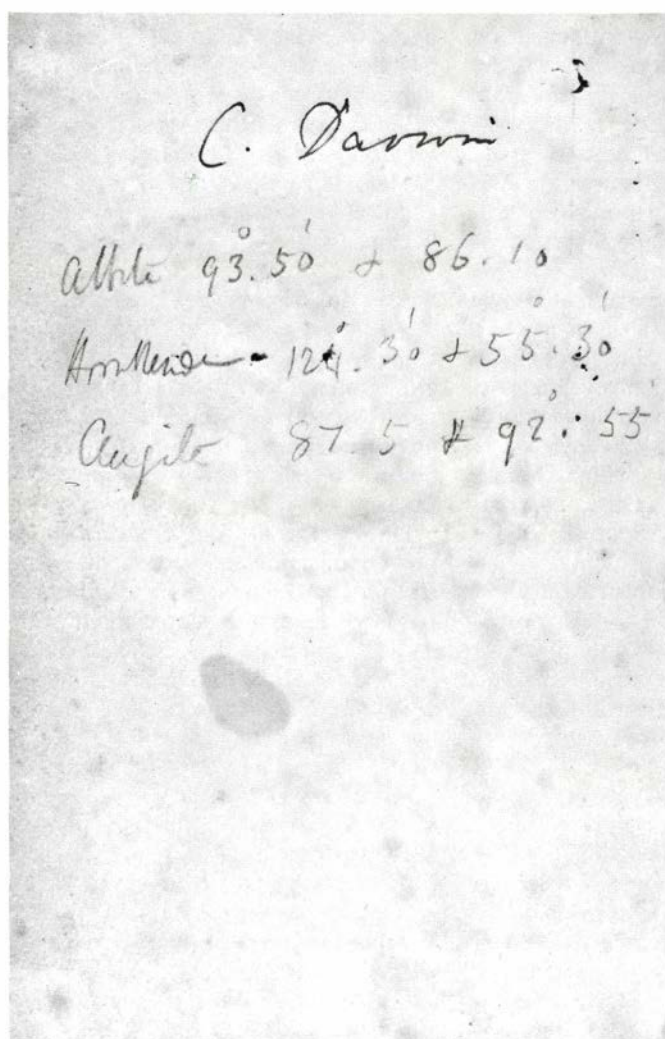 C. Darwin
Albite 93°.50' & 86.10
Hornblende - 124°.30' & 55°.30'
Augite 87 5 & 92°. 55'